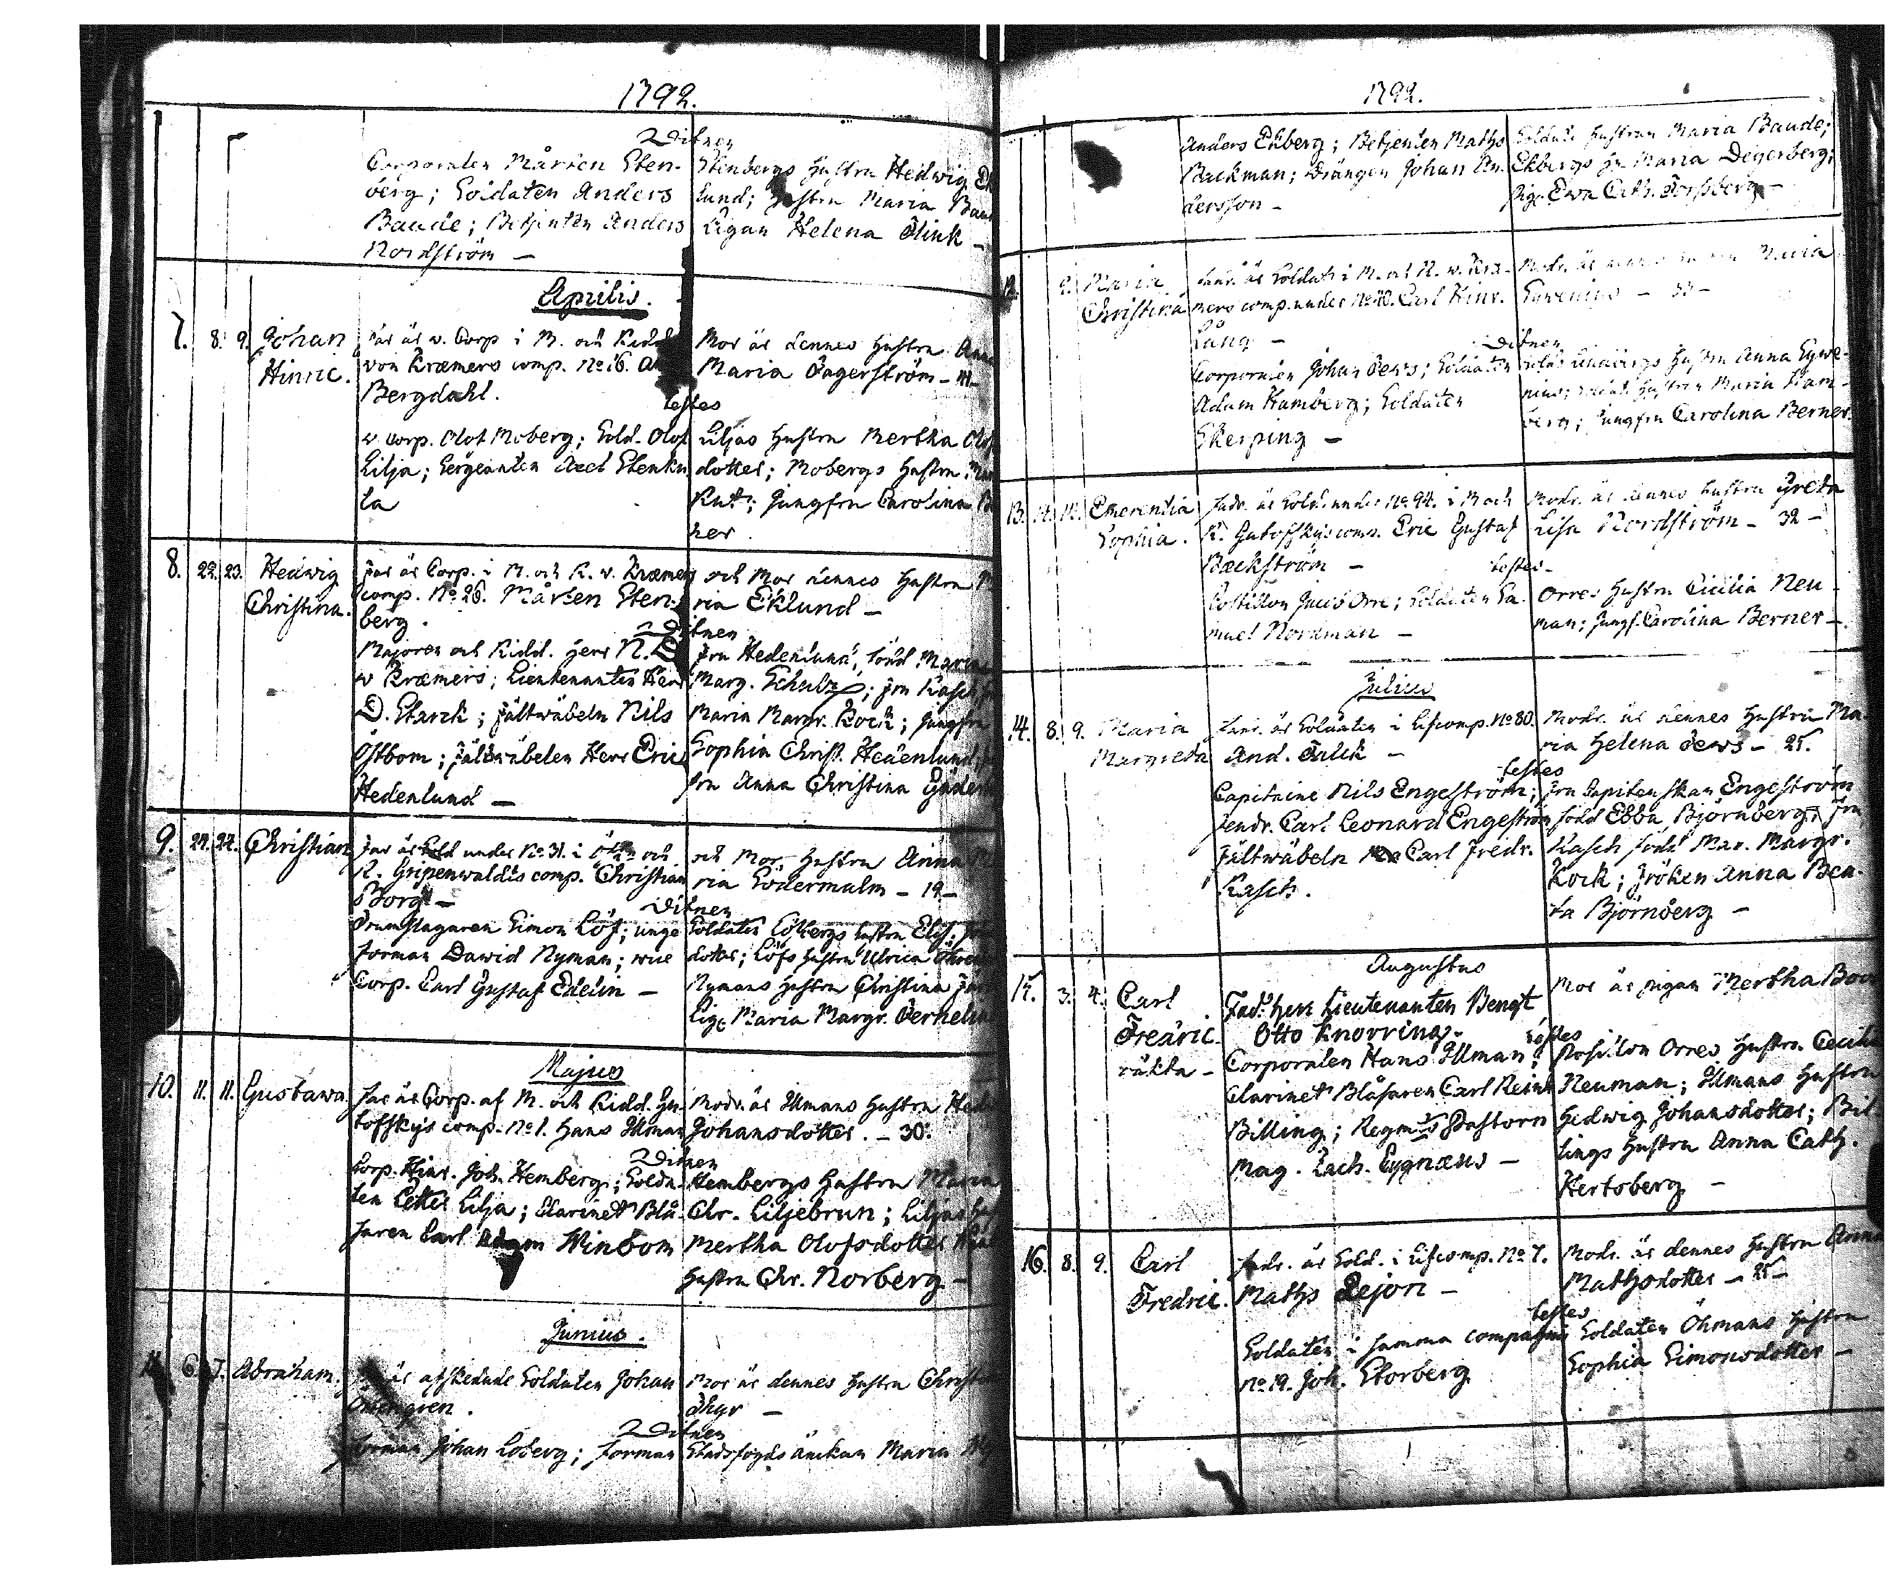 1792.
Witnen
Corporalen Mårten Sten-
berg; Soldaten Anders
Baude; Betjenten Anders
Nordström —
Stenbergs hustru Hedwig Ek
lund; hustru Maria Bau
Pigan Helena Flink —
Aprilis.
7. 8. 9. Johan
Hinric.
Far är v. Corp i M. och Ridd
von Kræmers comp. No 16.
Bergdahl.
Mor är dennes hustru Anna
Maria Fagerström — 41 —
testes
v. Corp. Olof Moberg; Sold. Olof
Lilja; Sergeanten Axel Stenku
la
Liljas hustru Mertha Olofs
dotter; Mobergs hustru Mar
Rut; Jungfru Carolina Be
ner.
8. 22. 23. Hedwig
Christina.
Far är Corp. i M. och R. v. Kræmers
comp. No 26. Mårten Sten-
berg.
och Mor dennes hustru Ma
ria Eklund —
Witnen
Majoren och Ridd. Herr N. D
v Kræmers; Lieutenanten Herr
D. Starck; Fältwäbeln Nils
Östbom; Fältwäbelen Herr Eric
Hedenlund —
Fru Hedenlund, född Maria
Marg. Schultz; Fru Kasch
Maria Margr. Kock; Jungfru
Sophia Christ. Hedenlund;
fru Anna Christina
9. 24. 27. Christian
Far är Sold under No 31. i och
R. Gripenwaldts comp. Christian
Borg —
och Mor hustru Anna Ma
ria Södermalm — 19 —
Witnen
Trumslagaren Simon Löf; unge
forman Dawid Nyman; vice
Corp. Carl Gustaf Edelin —
Soldaten Löbergs hustru Elis.
dotter; Löfs hustru Ulrica
Nymans hustru Christina
Pig. Maria Margr.
Majus
10. 11. 11. Gustawa
Far är Corp. af M. och Ridd. Gu-
toffskys comp. No 1. Hans Illman
Modr. är Illmans hustru Hed
Johansdotter. — 30.
Witnen
Corp. Hinr. Joh. Hemberg; Solda-
ten Petter Lilja; Clarinett Blå-
saren Carl Adam Winbom
Hembergs hustru Maria
Chr. Liljebrun; Liljas hu
Mertha Olofsdotter
hustru Chr. Norberg —
Junius.
6. 7. Abraham.
är afskedade Soldaten Johan
Mor är dennes hustru Christ
—
Witnen
Forman Johan Loberg; forman
Stadsfogds änckan Maria
1792.
Anders Ekberg; Betjenten Maths
Backman; Drängen Johan An-
dersson —
Soldats hustrun Maria Baude;
Ekbergs h. Maria Degerberg;
Pig. Ewa Cath. Forssberg —
12. 9. Maria
Christina
Fadr. är Soldat i M. och R. v. Kræ-
mers comp. under No 40. Carl Hinr.
Lång —
Modr. är hustru Maria
Gyvenius — 33 —
Witnen
Corporalen Johan Tews; Soldaten
Adam Kamberg; Soldaten
Skerping —
hustru Anna Gyve-
nius; hustru Maria Kam-
berg; Jungfru Carolina Berner.
13. 14. 14. Emerentia
Sophia.
Fadr. är Sold. under No 94. i M och
R. Gutoffskys comp. Eric Gustaf
Backström —
Modr. är dennes hustru Greta
Lisa Nordström — 32 —
testes —
Postillon Jacob Orre; Soldaten Sa-
muel Nordman —
Orres hustru Cicilia Neu-
man; Jungf. Carolina Berner —
Julius
14. 8. 9. Maria
Margreta
Fadr. är Soldaten i Lifcomp. No 80.
And. Falck —
Modr. är dennes hustru Ma-
ria Helena Tews — 25.
testes
Capitaine Nils Engeström;
Fendr. Carl Leonard Engeström
Fältwäbeln Carl Fredr.
Kasch.
Fru Capitenskan Engeström
född Ebba Björnberg; Fru
Kasch född Mar. Margr.
Kock; Fröken Anna Bea-
ta Björnberg —
Augustus
15. 3. 4. Carl
Fredric
oäkta —
Fad. herr Lieutenanten Bengt
Otto Knorring.
Mor är pigan Mertha Boo
testes
Corporalen Hans Illman;
Clarinett Blåsaren Carl Reinh
Billing; Regm:ts Pastorn
Mag. Zach. Cygnæus —
Postilon Orres hustru Cecili
Neuman; Illmans hustru
Hedwig Johansdotter; Bil-
lings hustru Anna Cath.
Hertsberg —
16. 8. 9. Carl
Fredric.
Fadr. är Sold. i Lifcomp. No 7.
Maths Lejon —
Modr. är dennes hustru Anna
Mathsdotter — 25 —
testes
Soldaten i samma compagni
No 19. Joh. Storberg
Soldaten Öhmans hustru
Sophia Simonsdotter —